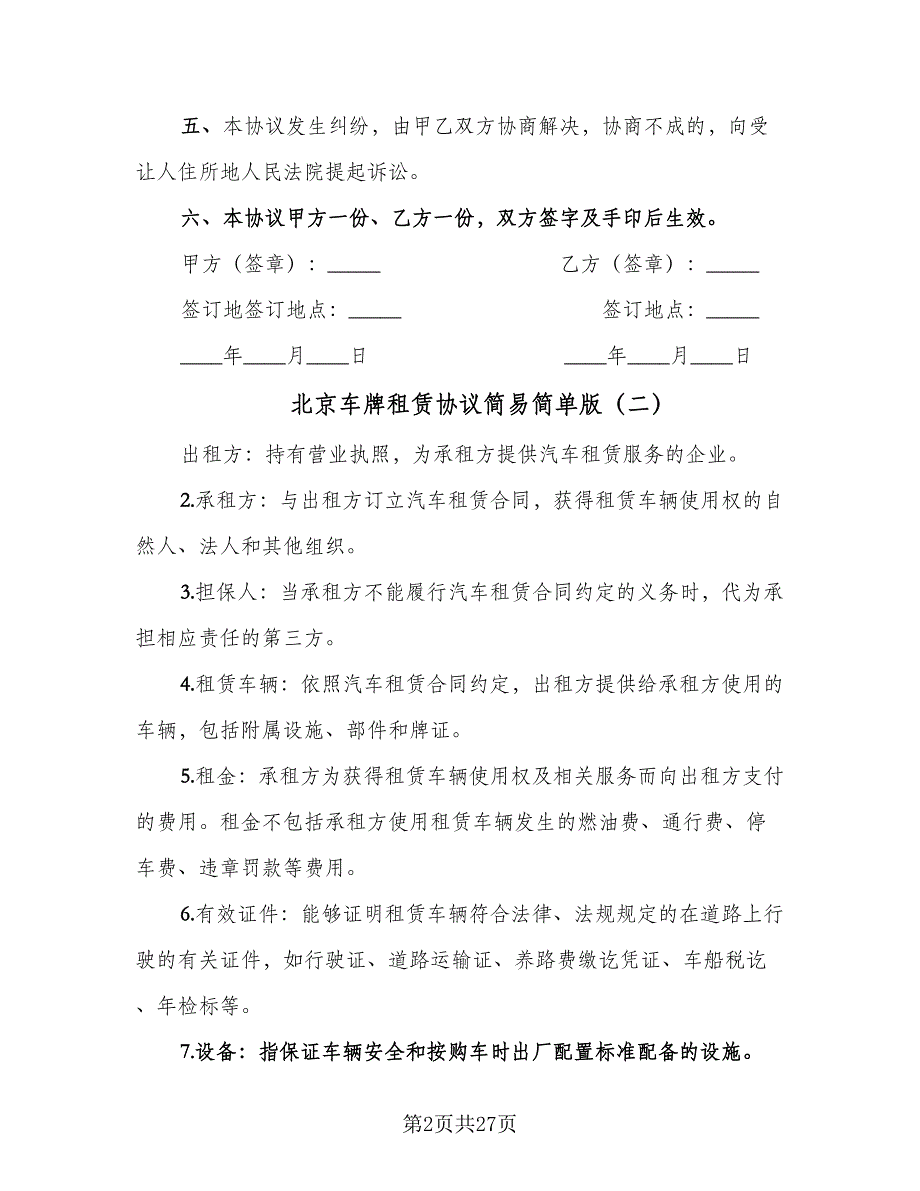 五、本协议发生纠纷，由甲乙双方协商解决，协商不成的，向受
让人住所地人民法院提起诉讼。
六、本协议甲方一份、乙方一份，双方签字及手印后生效。
甲方（签章）：_____ 乙方（签章）：_____
签订地签订地点：_____ 签订地点：_____
____年____月____日 ____年____月____日
北京车牌租赁协议简易简单版（二）
出租方：持有营业执照，为承租方提供汽车租赁服务的企业。
2.承租方：与出租方订立汽车租赁合同，获得租赁车辆使用权的自
然人、法人和其他组织。
3.担保人：当承租方不能履行汽车租赁合同约定的义务时，代为承
担相应责任的第三方。
4.租赁车辆：依照汽车租赁合同约定，出租方提供给承租方使用的
车辆，包括附属设施、部件和牌证。
5.租金：承租方为获得租赁车辆使用权及相关服务而向出租方支付
的费用。租金不包括承租方使用租赁车辆发生的燃油费、通行费、停
车费、违章罚款等费用。
6.有效证件：能够证明租赁车辆符合法律、法规规定的在道路上行
驶的有关证件，如行驶证、道路运输证、养路费缴讫凭证、车船税讫
、年检标等。
7.设备：指保证车辆安全和按购车时出厂配置标准配备的设施。
第2页共27页